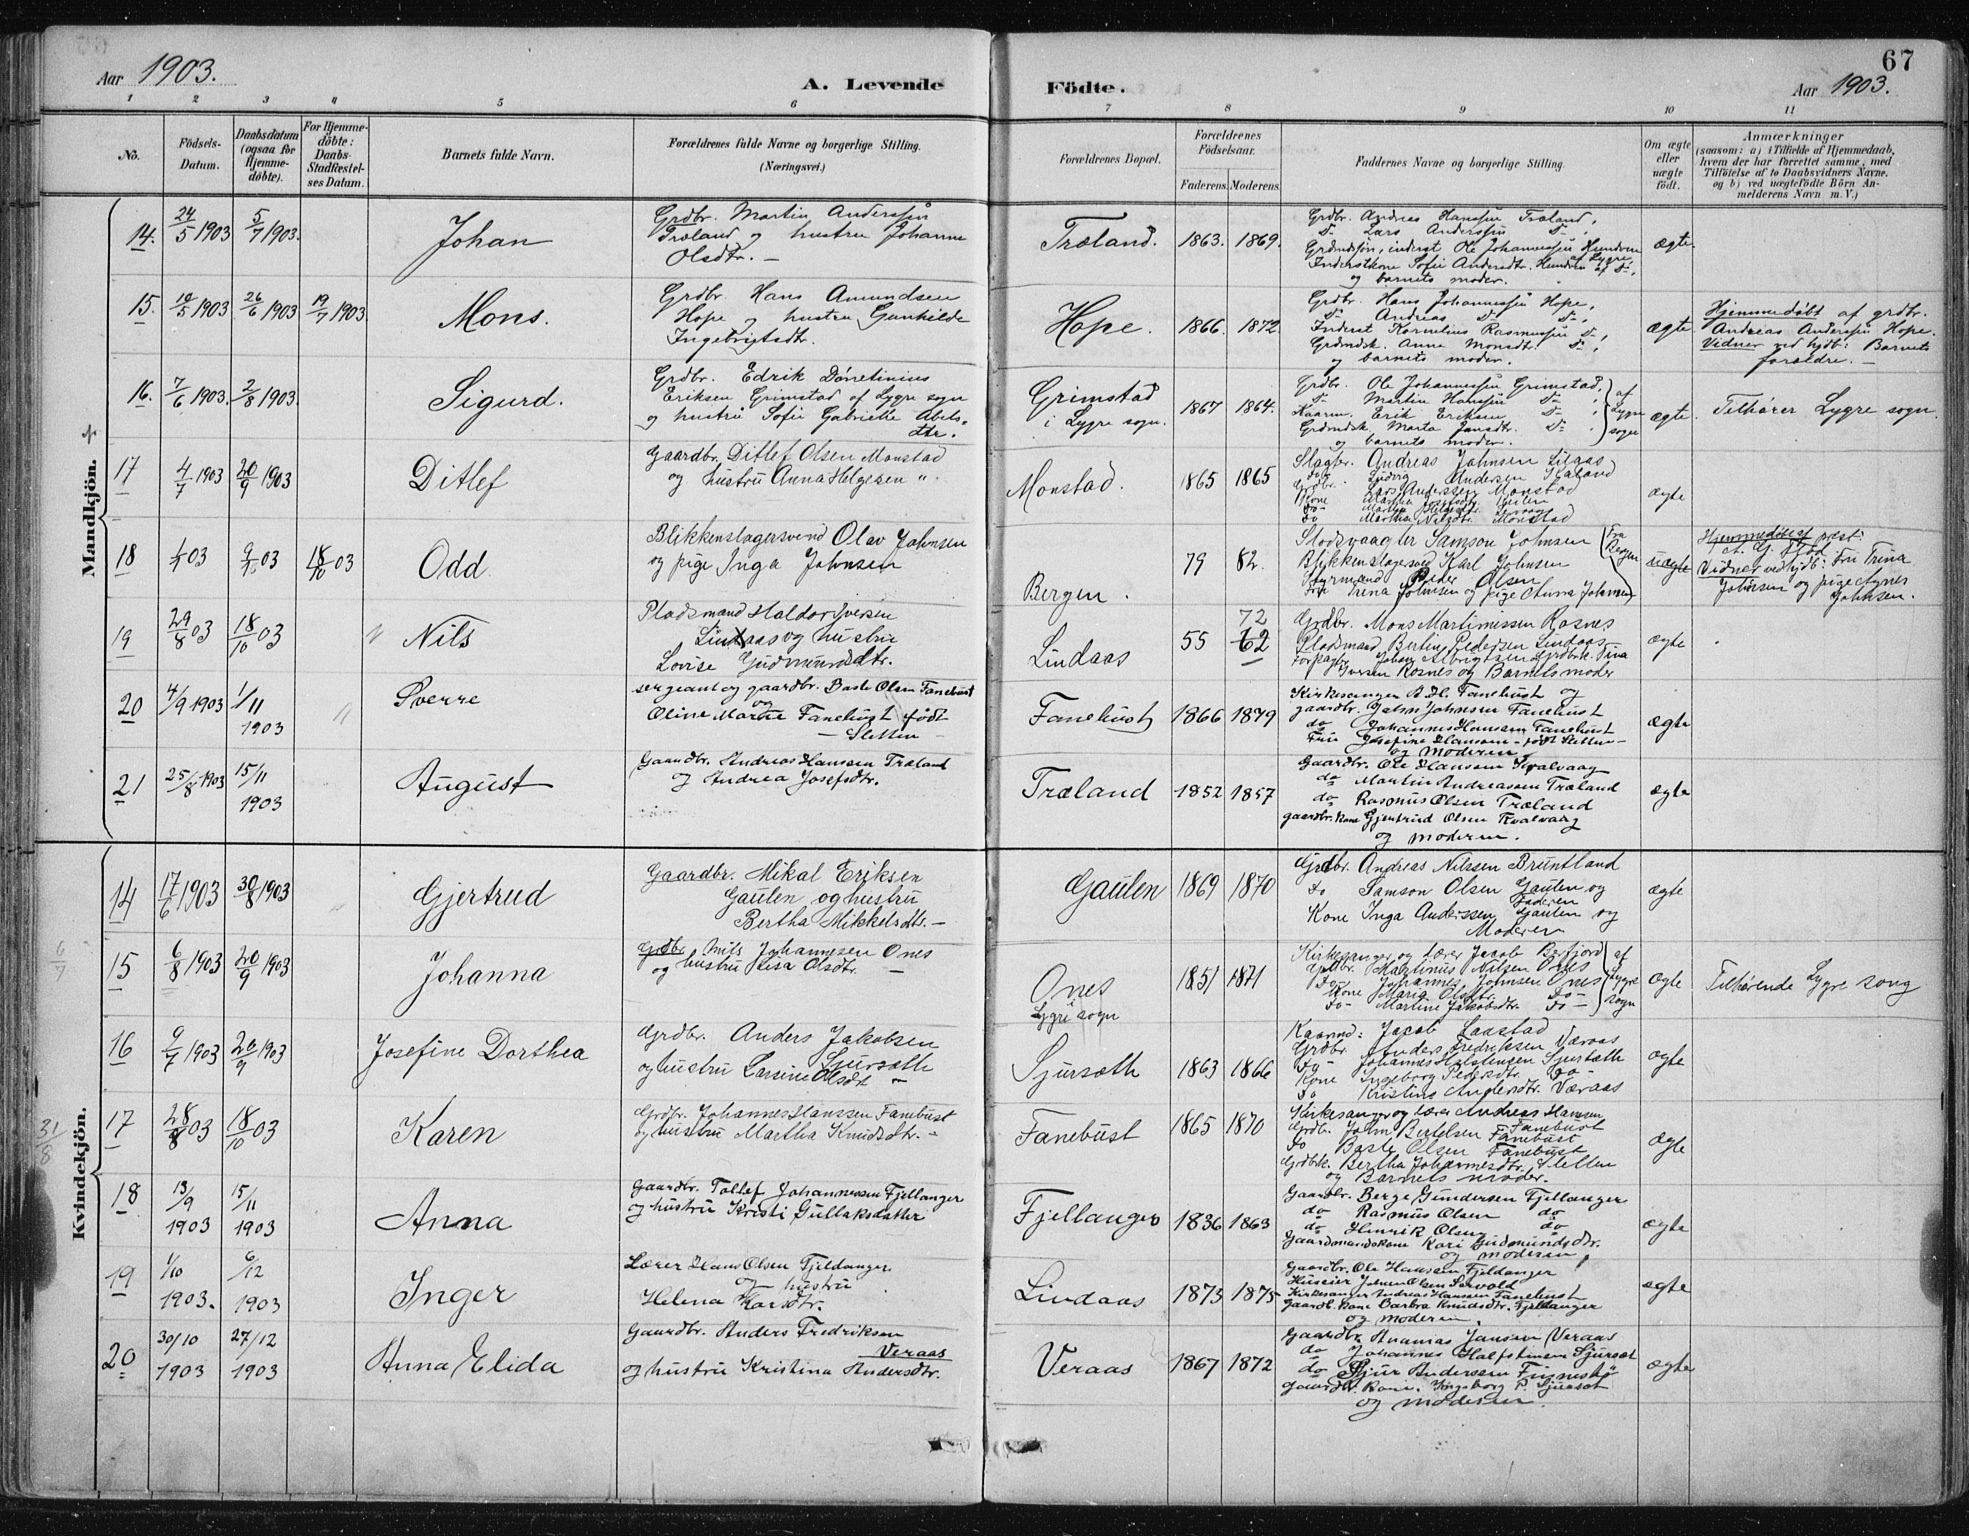 67
Aar 1903.
A. Levende Födte.
Aar 1903.
1 2 3 4 5 6 7 8 9 10 11
No.
Födsels-
Datum.
Daabsdatum
(ogsaa for
Hjemme-
döbte).
For Hjemme-
döbte:
Daabs-
Stadfæstel-
ses Datum.
Barnets fulde Navn.
Forældrenes fulde Navne og borgerlige Stilling.
(Næringsvei.)
Forældrenes Bopæl.
Forældrenes
Födselsaar.
Faderens. Moderens.
Faddernes Navne og borgerlige Stilling.
Om ægte
eller
uægte
födt.
Anmærkninger
(saasom: a) i Tilfælde af Hjemmedaab,
hvem der har forrettet samme, med
Tilföielse af to Daabsvidners Navne.
og b) ved uægtefödte Börn An-
melderens Navn m. V.)
Mandkjön.
14. 24/5 1903 5/7 1903. Johan
Grdbr. Martin Anderssøn
Træland og hustru Johanne
Olsdtr. —
Træland. 1863. 1869.
Grdbr. Andreas Hanssøn Træland,
D— Lars Anderssøn D—,
Grdmdsøn, inderst Ole Johannessøn Hundven
Inderstkone Sofie Andersdtr. Hundven af D—,
og barnets moder.
ægte.
15. 10/5 1903 26/6 1903 19/7 1903 Mons.
Grdbr. Hans Amundsen
Hope og hustru Gunhilde
Ingebrigtsdtr.
Hope. 1866. 1872.
Grdbr. Hans Johannessøn Hope,
D— Andreas D— D—,
Inderst Kornelius Rasmussøn D—,
Grdmdsk. Anne Monsdtr. D—,
og barnets moder.
ægte.
Hjemmedøbt af grdbr.
Andreas Anderssøn Hope.
Vidner ved hjdb: Barnets
forældre. —
16. 7/6 1903. 2/8 1903. Sigurd.
Grdbr. Edrik
Eriksen Grimstad af Lygre sogn
og hustru Sofie Gabrielle Abels-
dtr.
Grimstad
i Lygre sogn.
1867 1864.
Grdbr. Ole Johannessøn Grimstad,
D— Martin Hanssøn D—
Kaarm. Erik Eriksen D—
Grdmdsk. Marta Jansdtr. D—
og barnets moder.
af
Lygre
sogn
ægte. Tilhører Lygre sogn.
17 4/7 1903 20/9 1903 Ditlef
Gaardbr. Ditlef Olsen Monstad
og hustru Anna Helgesen "
Monstad. 1865 1865
Slagter. Andreas Johnsen
do Ludvig Andersen
Grdbr. Lars Anderssen Monstad
Kone
Do Martha Nilsdtr. Monstad
ægte
18 03 03 18/10 03 Odd
Blikkenslagersvend Olav Johnsen
og pige Inga Johnsen
Bergen. 79 82.
Samson Johnsen
Blikkenslagersvd Karl Johnsen
Styrmand Peder Olsen
Fru Trina Johnsen og pige Anna Johnsen
Fra
Bergen
uægte
Hjemmedöbt
Vidner ved hjdb: Fru Trina
Johnsen og pige Agnes
Johnsen.
19 29/8 03 18/10 03 Nils
Pladsmand Haldor Iversen
Lindaas og hustru
Lovise Gudmundsdtr.
Lindaas 55 62 72
Grdbr. Mons Martinussen Rosnes
Pladsmand Bertin Pedersen Lindaas
Forpagter Johan Albrigtsen Grdbrk. Tina
Iversen Rosnes og Barnets moder
ægte
20 4/9 1903 1/11 1903 Sverre
sergeant og gaardbr. Baste Olsen Fanebust
og
Oline Martie Fanebust född
— Sletten —
Fanebust 1866 1879
Kirkesanger A. H. Fanebust og
gaardbr. John Johnsen Fanebust
do Johannes Hansen Fanebust
Fru Josefine Hansen — född Sletten —
og Moderen
ægte
21 25/8 1903 15/11 1903 August
Gaardbr. Andreas Hansen Træland
og Andrea Josefsdtr.
Træland 1852 1857
Gaardbr. Ole Hansen Kvalvaag
do Martin Andreassen Træland
do Rasmus Olsen Træland
gaardbr. kone Gjertrud Olsen Kvalvaag
og moderen.
ægte
Kvindekjön.
14 17/6 1903 30/8 1903 Gjertrud
Gaardbr. Mikal Eriksen
Gaulen og hustru
Bertha Mikkelsdtr. —
Gaulen 1869 1870
Grdbr. Andreas Nilssen Bruntland
Do Samson Olsen Gaulen og
Faderen
Kone Inga Anderssen Gaulen og
Moderen
ægte
6/7
15 6/8 1903 20/9 1903 Johanna
Grdbr. Nils Johannesen Ones
og hustru Lisa Olsdtr. —
Ones
i
Lygre sogn
1851 1871
Kirkesanger og lærer Jacob
Grdbr. Martinus Nilsen Ones
Do Johannes Johnsen Ones
Kone Maria Olsdtr. Do —
Do— Martine Jakobsdtr. Do —
af
Lygre
sogn
ægte Tilhørende Lygre song
16 9/7 1903 20/9 1903 Josefine Dorthea
Grdbr. Anders Jakobsen
Sjursæth
og hustru Larsine Olsdt —
Sjursæth 1863 1866
Kaarmd: Jacob
Grdbr. Anders Fredriksen Væraas
Do— Johannes Halstensen Sjursæth
Kone Ingeborg Pedersdtr. Do—
Do Kristine Andersdtr. Væraas
ægte
31/8
17 28/8 03 18/10 03 Karen
Grdbr. Johannes Hanssen Fanebust
og hustru Martha Knudsdtr. —
Fanebust 1865 1870
Kirkesanger og lærer Andreas Hanssen
Fanebust
Grdb. John Bertelsen Fanebust
Do Baste Olsen Fanebust
Grdbrk. Bertha Johannesdtr. Sletten
og Barnets moder.
ægte
18 13/9 1903 15/11 1903 Anna
Gaardbr. Tollef Johannessen Fjellanger
og hustru Kristi Gullaksdatter
Fjellanger 1836 1863
Gaardbr. Berge Gundersen Fjellanger
do Rasmus Olsen do
do Henrik Olsen do
Gaardmandskone Kari Gudmundsdtr.
og moderen
ægte
19 1/10 1903. 6/12 1903 Inger
Lærer Hans Olsen Fjeldanger
og hustru
Helena Karsdtr.
Lindaas 1873 1875
Gaardbr. Ole Hansen Fjeldanger
Huseier Johan Olsen
Kirkesanger Andreas Hansen Fanebust
Gaardb. kone Barbra Knudsdtr. Fjeldanger
og moderen.
ægte
20 30/10 1903 27/12 1903 Anna Elida
Gaardbr. Anders Fredriksen
Veraas
og hustru Kristina Andersdtr.
Veraas 1867 1872
Gaardbr. Jansen Veraas
do Johannes Halfstensen Sjursæt
do Sjur Anderssen
Gaardbr. Kone. Ingeborg P. Sjursæt
og moderen.
ægte